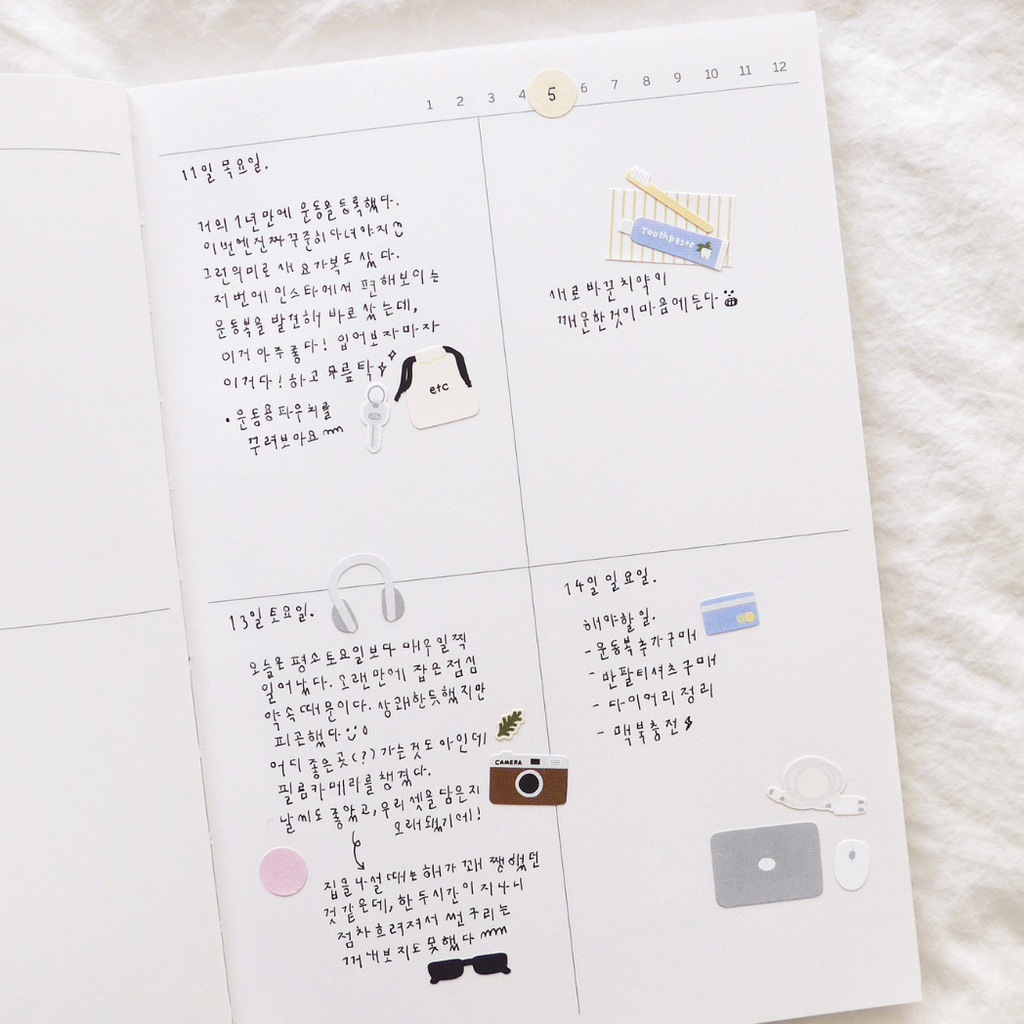 1 2 3 4 5 6 7 8 9 10 11 12
11일 목요일.
거의 1년만에 운동을 등록했다.
이번엔 진짜 꾸준히 다녀야지
그런의미로 새 요가복도 샀다.
저번에 인스타에서 편해보이는
운동복을 발견해 바로 샀는데,
이거 아주 좋다! 입어보자마자
이거다! 하고 무릎 탁
• 운동용 파우치를
꾸려보아요
etc
Toothpaste
새로 바꾼 치약이
개운한것이 마음에 든다
13일 토요일.
오늘은 평소 토요일보다 매우 일찍
일어났다. 오랜만에 잡은 점심
약속 때문이다. 상쾌한듯했지만
피곤했다
어디 좋은 곳(?) 가는 것도 아인데
필름카메라를 챙겼다.
날씨도 좋았고, 우리 셋을 담은지
오래됐기에!
CAMERA
집을 나설 때는 해가 꽤 쨍했던
것 같은데, 한 두시간이 지나니
점차 흐려져서 썬구리는
꺼내보지도 못했다
14일 일요일.
해야할일.
- 운동복 추가구매
- 반팔티셔츠 구매
- 다이어리 정리
- 맥북충전